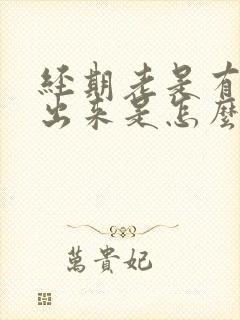 經期老是有
出來是怎麼
萬貴妃